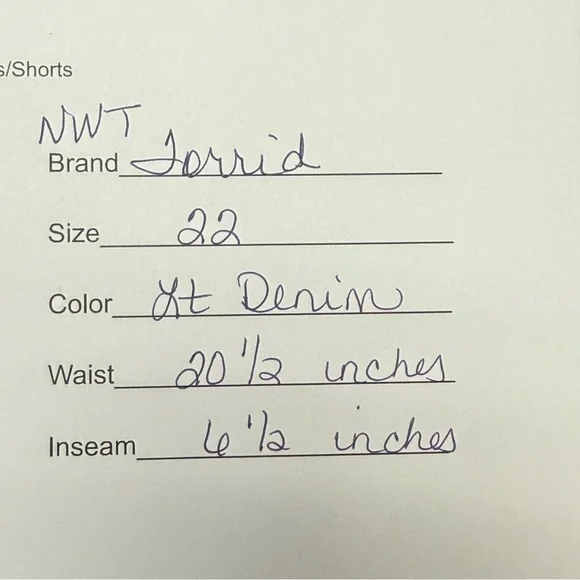 s/Shorts
NWT
Brand Torrid
Size 22
Color Lt Denim
Waist 20 1/2 inches
Inseam 6 1/2 inches